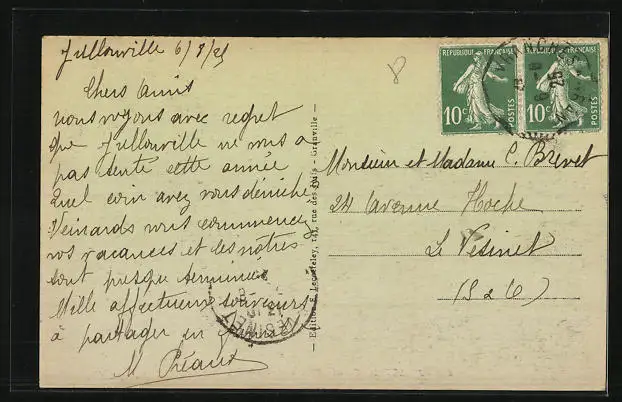 Jullouville 6/8/25
Chers Amis
nous voyons avec regret
que Jullouville ne vous a
pas tenté cette année
Quel coin avez vous déniché
Veinards vous commencez
vos vacances et les nôtres
sont presque terminées
Mille affectueux souvenirs
à partager en
M Préaux
Edition F. Lecapeley, rue des Juifs - Granville
REPUBLIQUE FRANÇAISE
10c POSTES
REPUBLIQUE FRANÇAISE
10c POSTES
Monsieur et Madame C. Brevet
24 Avenue Hoche
Le Vésinet
(S & O)
VESINET